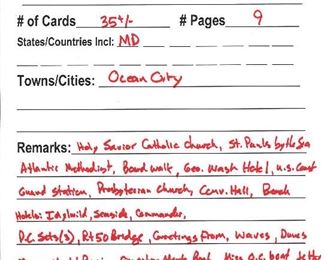 # of Cards 35+/- # Pages 9
States/Countries Incl: MD
Towns/Cities: Ocean City
Remarks: Holy Savior Catholic Church, St. Pauls by the Sea
Atlantic Methodist, Boardwalk, Geo. Wash Hotel, U.S. Coast
Guard Station, Presbyterian Church, Conv. Hall, Beach
Hotels: Idylwild, Seaside, Commander,
P.C. Sets(3), Rt 50 Bridge, Greetings From, Waves, Dunes